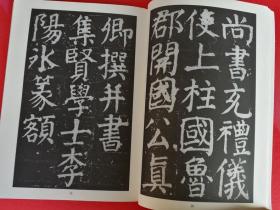 尚書充禮儀
使上柱國魯
郡開國公真
卿撰并書
集賢學士李
陽冰篆額